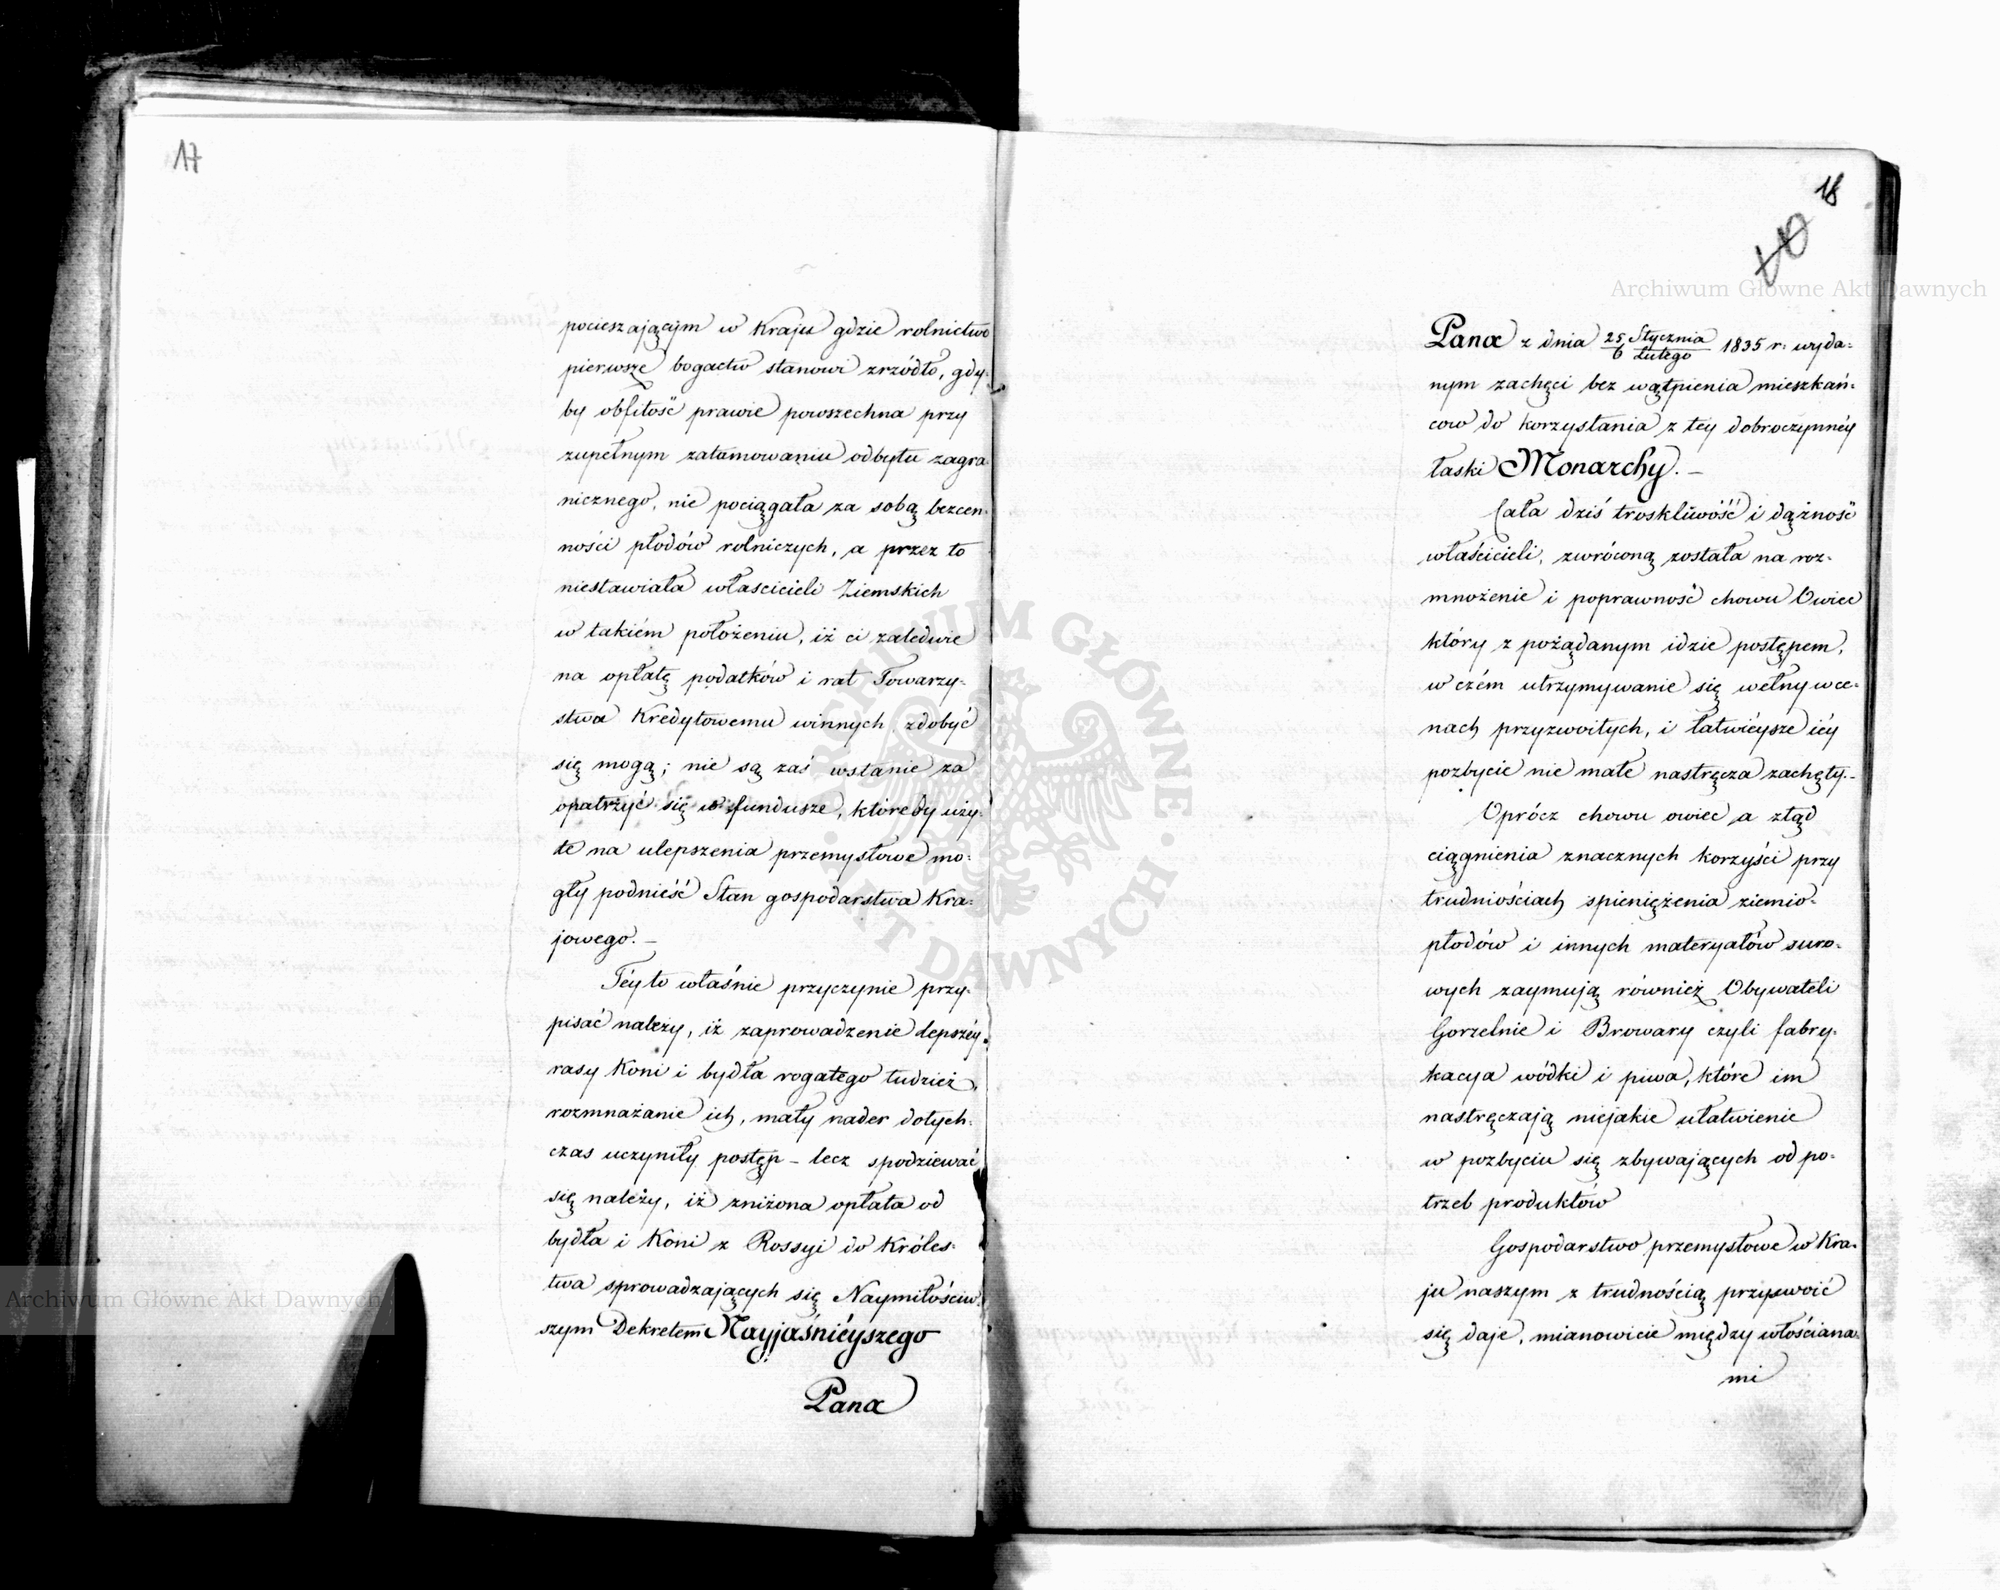 17
pocieszającym w Kraju gdzie rolnictwo
pierwsze bogactw stanowi zrzódło, gdy-
by obfitość prawie powszechna przy
zupełnym zatamowaniu odbytu zagra-
nicznego, nie pociągała za sobą bezcen-
ności płodów rolniczych, a przez to
niestawiała właścicieli Ziemskich
w takiém położeniu, iż ci zaledwie
na opłatę podatków i rat Towarzy-
stwa Kredytowemu winnych zdobyć
się mogą; nie są zaś wstanie za
opatrzyć się w fundusze, któredy uży-
te na ulepszenia przemysłowe mo-
gły podnieść Stan gospodarstwa Kra-
jowego. —
Téyto właśnie przyczynie przy-
pisać należy, iż zaprowadzenie lepszéy
rasy Koni i bydła rogatego tudzież
rozmnażanie ich, mały nader dotych-
czas uczyniły postęp – lecz spodziewać
się należy, iż zniżona opłata od
bydła i Koni z Rossyi do Króles-
twa sprowadzających się Naymiłościw-
szym Dekretem Nayjaśniéyszego
Pana
18
Pana z dnia 25 Stycznia / 6 Lutego 1835 r: wyda-
nym zachęci bez wątpienia mieszkań-
ców do korzystania z téy dobroczynnéy
łaski Monarchy. —
Cała dziś troskliwość i dążność
właścicieli, zwróconą została na roz-
mnożenie i poprawność chowu Owiec
który z pożądanym idzie postępem,
w czém utrzymywanie się wełny wce-
nach przyzwoitych, i łatwiéysze iéy
pozbycie nie małe nastręcza zachęty. –
Oprócz chowu owiec a ztąd
ciągnienia znacznych korzyści przy
trudniościach spieniężenia ziemio-
płodów i innych materyałów suro-
wych zaymują również Obywateli
Gorzelnie i Browary czyli fabry-
kacya wódki i piwa, które im
nastręczają niejakie ułatwienie
w pozbyciu się zbywających od po-
trzeb produktów
Gospodarstwo przemysłowe w Kra-
ju naszym z trudnością przyswoić
się daje, mianowicie między włościana-
mi
Archiwum Główne Akt Dawnych
Archiwum Główne Akt Dawnych
ARCHIWUM GŁÓWNE · AKT DAWNYCH ·